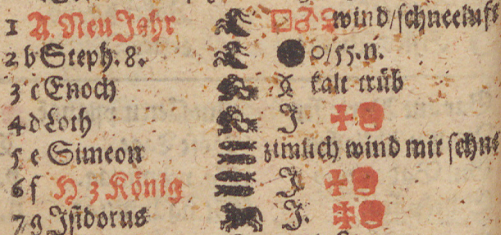 1 A Neu Jahr □♂♀ wind/schneeluft
2 b Steph. 8. ● 0/55.n.
3 c Enoch kalt trüb
4 d Loth J.
5 e Simeon zimlich wind mit schne
6 f H 3 König J.
7 g Isidorus J.